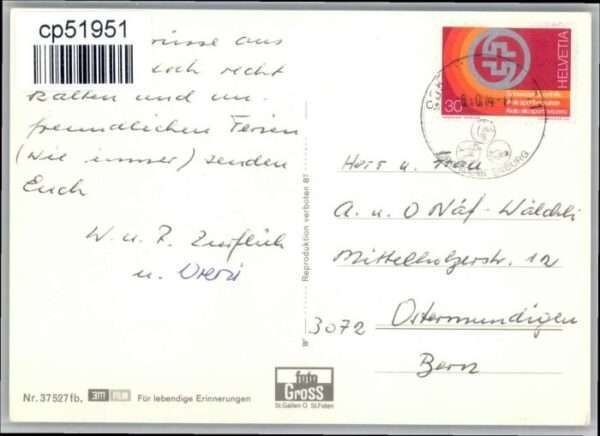 cp51951
aus
doch recht
kalten und un-
freundlichen Ferien
(wie immer) senden
Euch
W. u. 7.
u. Vreni
Reproduktion verboten 87
HELVETIA
30
Herr u. Frau
A. u. O Näf-Wälchli
Mittelholzerstr. 12
3072 Ostermundigen
Bern
Nr. 37527fb. 3m FILM Für lebendige Erinnerungen
foto
Gross
St.Gallen O St.Fiden